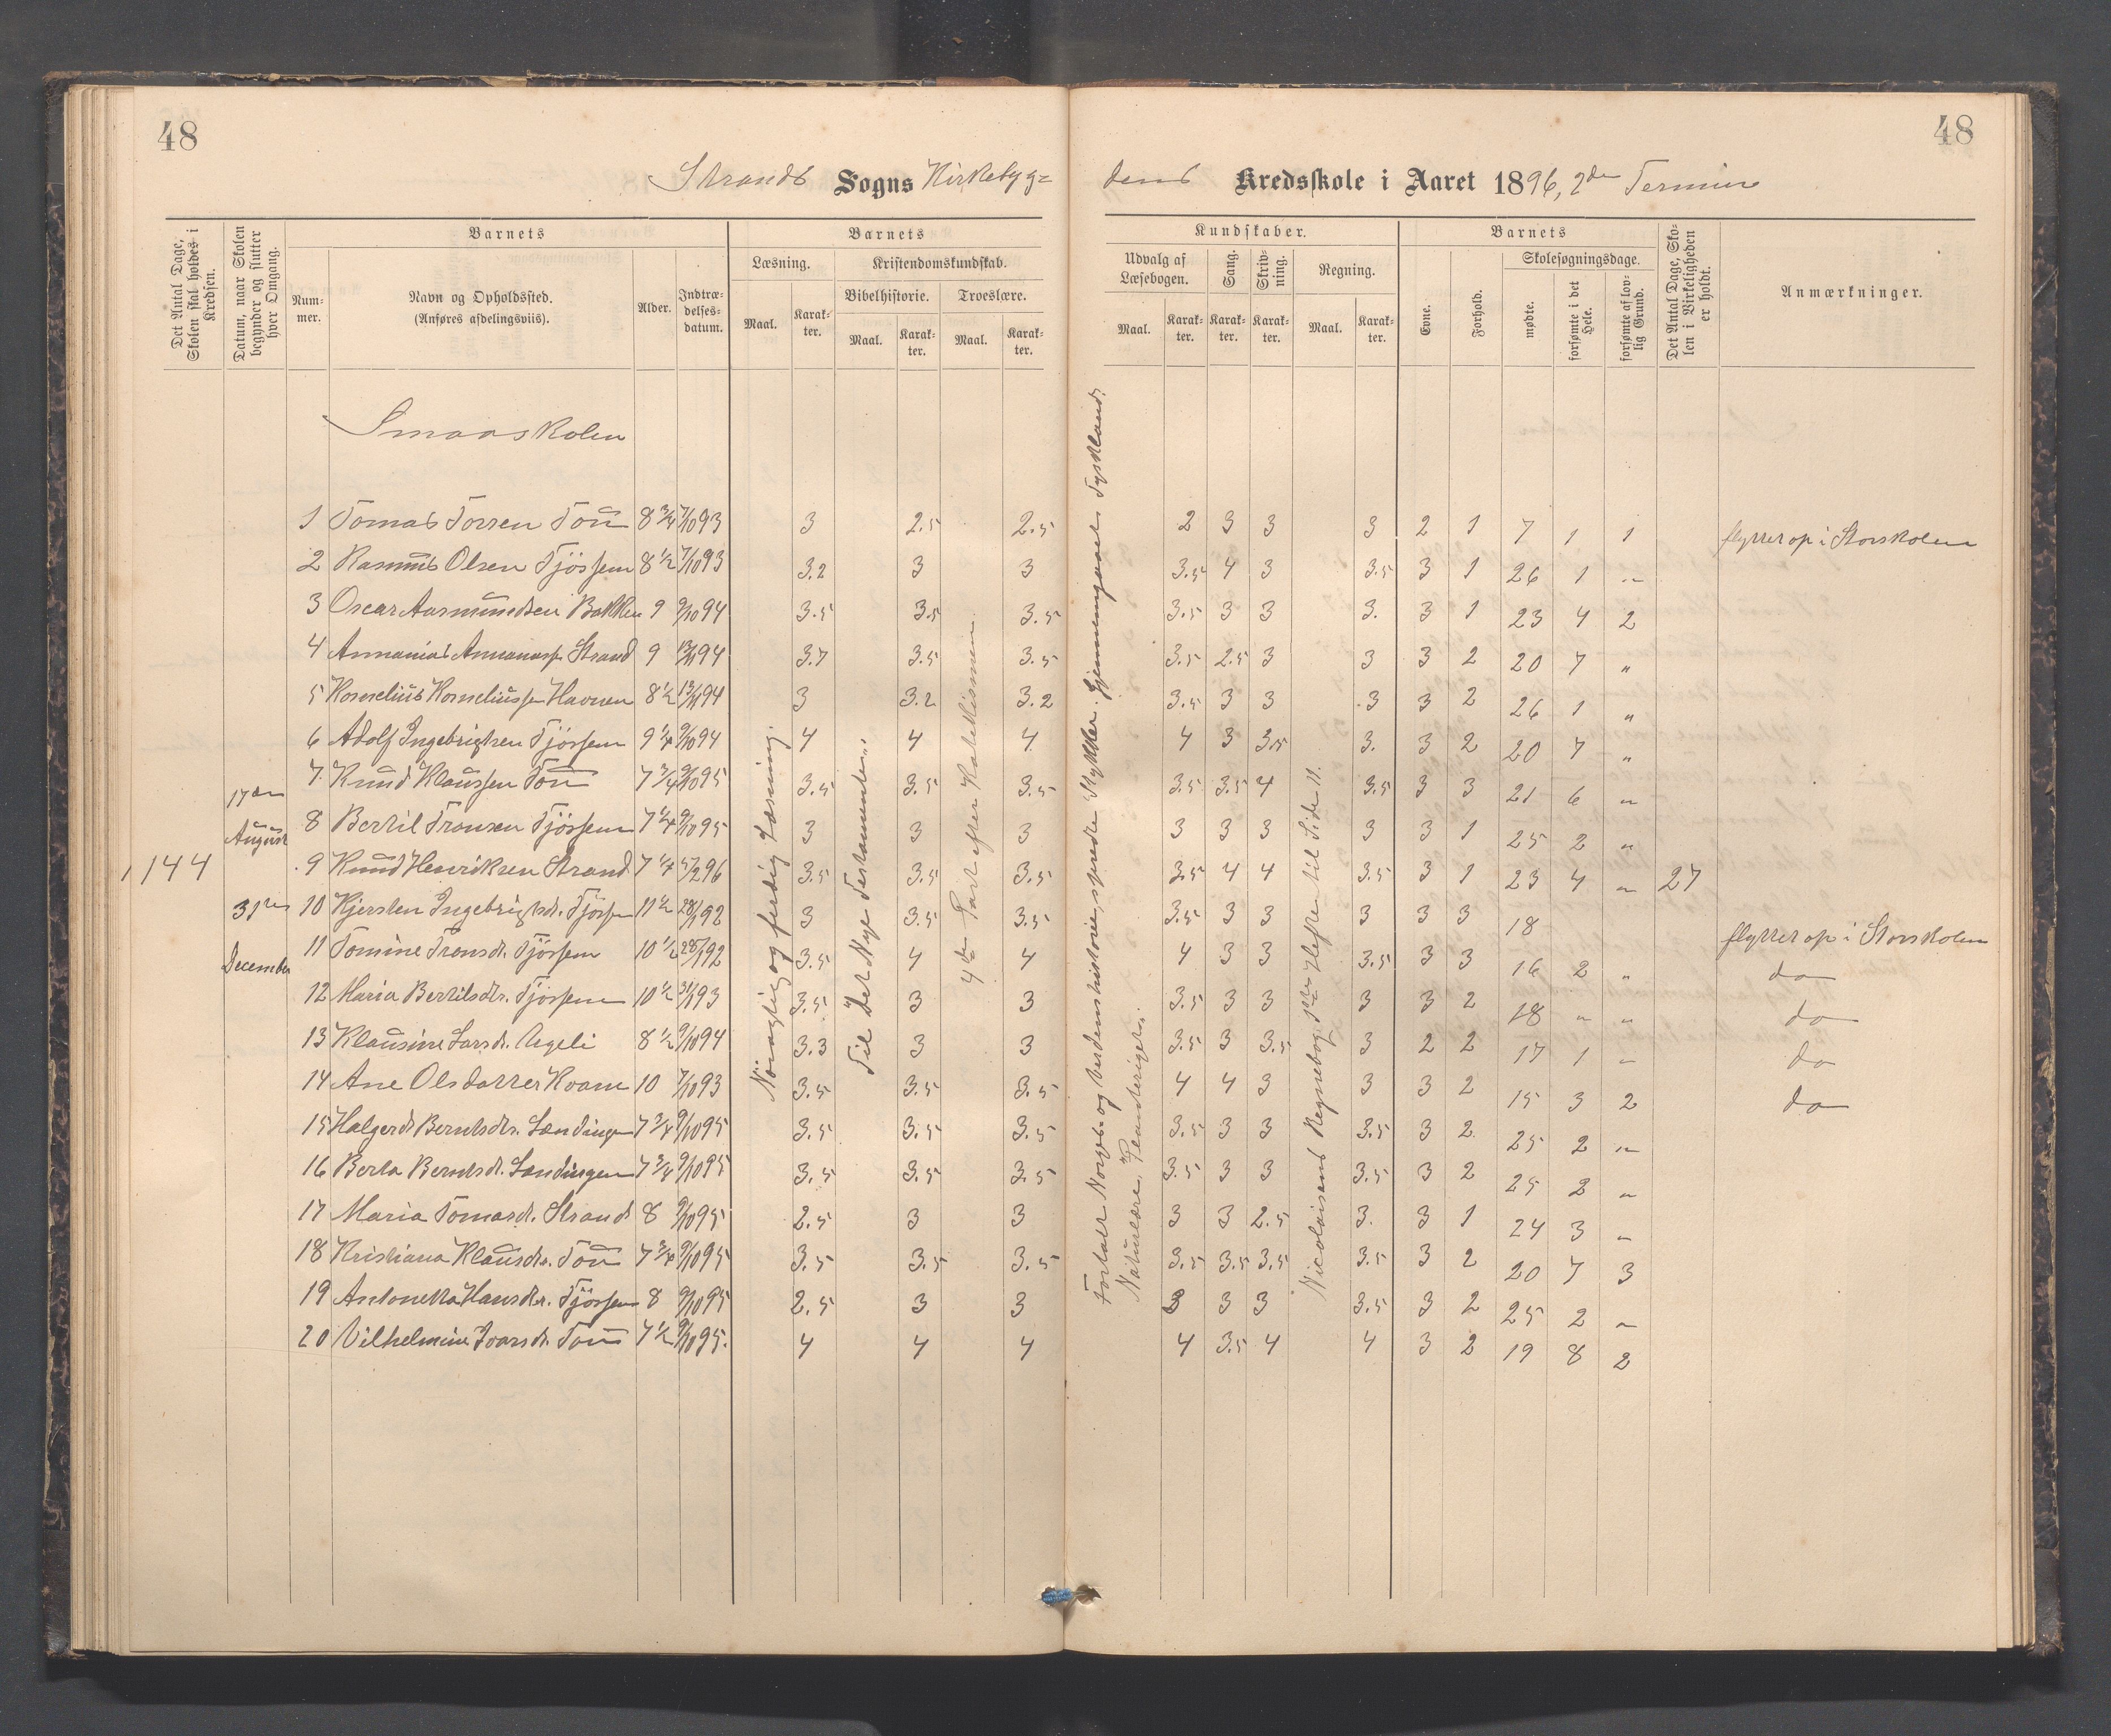 48
48
Strands Sogns Kirkebyg=
dens Kredsskole i Aaret 1896, 2den Termin
Det Antal Dage, Skolen skal holdes i Kredsen.
Datum, naar Skolen begynder og slutter hver Omgang.
Barnets
Num-mer.
Navn og Opholdssted.
(Anføres afdelingsviis).
Alder.
Indtræ-delses-datum.
Barnets
Læsning.
Kristendomskundskab.
Bibelhistorie.
Troeslære.
Maal.
Karak-ter.
Maal.
Karak-ter.
Maal.
Karak-ter.
Kundskaber.
Udvalg af Læsebogen.
Sang.
Skriv-ning.
Regning.
Maal.
Karak-ter.
Karak-ter.
Karak-ter.
Maal.
Karak-ter.
Barnets
Evne.
Forhold.
Skolesøgningsdage.
mødte.
forsømte i det Hele.
forsømte af lov-lig Grund.
Det Antal Dage, Sko-len i Virkeligheden er holdt.
Anmærkninger.
Smaaskolen
144
17de August
31te December
Nöiagtig og færdig Læsning.
Til Det Nye Testamente.
4de Part efter Katekismen.
Fortalt Norges- og Verdenshistorie, spredte Stykker. Gjennemgaaet Tyskland,
Naturlære, Planteriget.
Nicolaisens Regnebog 1ste Hefte til Side 11.
1 Tomas Torsen Tou 8 3/4 7/10 93 3 2.5 2.5 2 3 3 3 2 1 7 1 1 flyttet op i Storskolen
2 Rasmus Olsen Tjössem 8 1/2 7/10 93 3.2 3 3 3.5 4 3 3.5 3 1 26 1 "
3 Oscar Aasmundsen Bakken 9 9/10 94 3.5 3.5 3.5 3.5 3 3 3. 3 1 23 4 2
4 Annanias Annaniass. Strand 9 94 3.7 3.5 3.5 3.5 2.5 3 3 3 2 20 7 "
5 Kornelius Korneliussen Havnen 8 1/2 94 3 3.2 3.2 3.5 3 3 3 3 2 26 1 "
6 Adolf Ingebrigtsen Tjössem 9 1/4 9/10 94 4 4 4 4 3 3.5 3. 3 2 20 7 "
7 Knud Klaussen Tou 7 3/4 9/10 95 3.5 3.5 3.5 3.5 3.5 4 3.5 3 3 21 6 "
8 Bertil Tronsen Tjössem 7 1/4 9/10 95 3 3 3 3 3 3 3 3 1 25 2 "
9 Knud Henriksen Strand 7 1/4 5/2 96 3.5 3.5 3.5 3.5 4 4 3.5 3 1 23 4 " 27
10 Kjersten Ingebrigtsdr. Tjössem 11 1/2 28/1 92 3 3.5 3.5 3.5 3 3 3 3 3 18 flyttet op i Storskolen
11 Tomine Tronsdr. Tjössem 10 1/2 28/1 92 3.5 4 4 4 3 3 3.5 3 3 16 2 " do
12 Maria Bertilsdtr. Tjössem 10 1/2 31/1 93 3.5 3 3 3.5 3 3 3 3 2 18 " " do
13 Klausine Larsdr. Ageli 8 1/2 9/10 94 3.3 3 3 3.5 3 3.5 3 2 2 17 1 " do
14 Ane Olsdatter Kvam 10 7/10 93 3.5 3.5 3.5 4 4 3 3 3 2 15 3 2 do
15 Halgerd Berntsdtr. Lændingen 7 3/4 9/10 95 3.5 3.5 3.5 3.5 3 3 3.5 3 2 25 2 "
16 Berta Berntsdr. Lændingen 7 3/4 9/10 95 3.5 3.5 3.5 3.5 3 3 3.5 3 2 25 2 "
17 Maria Tomasdr. Strand 8 9/10 95 2.5 3 3 3 3 2.5 3. 3 1 24 3 "
18 Kristiana Klausdtr. Tou 7 3/4 9/10 95 3.5 3.5 3.5 3.5 3.5 3.5 3.5 3 2 20 7 3
19 Antonetta Hansdtr. Tjössem 8 9/10 95 2.5 3 3 3 3 3 3.5 3 2 25 2 "
20 Vilhelmine Ivarsdr. Tou 7 1/2 9/10 95. 4 4 4 4 3.5 4 4 3 2 19 8 2